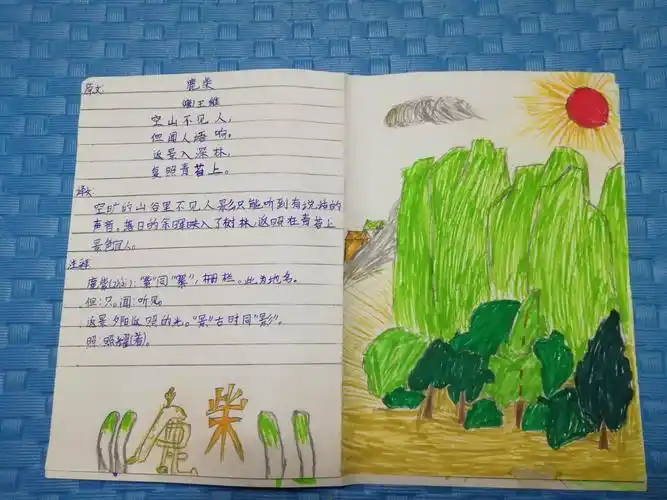 原文
鹿柴
唐王维
空山不见人,
但闻人语响。
返景入深林,
复照青苔上。
译文:
空旷的山谷里不见人影只能听到有说话的
声音。落日的余晖映入了树林,返照在青苔上
景色宜人。
注释:
鹿柴(zhài):"柴"同"寨",栅栏。此为地名。
但:只。闻:听见。
返景:夕阳返照的光。"景"古时同"影"。
照:照耀(着)。
鹿柴